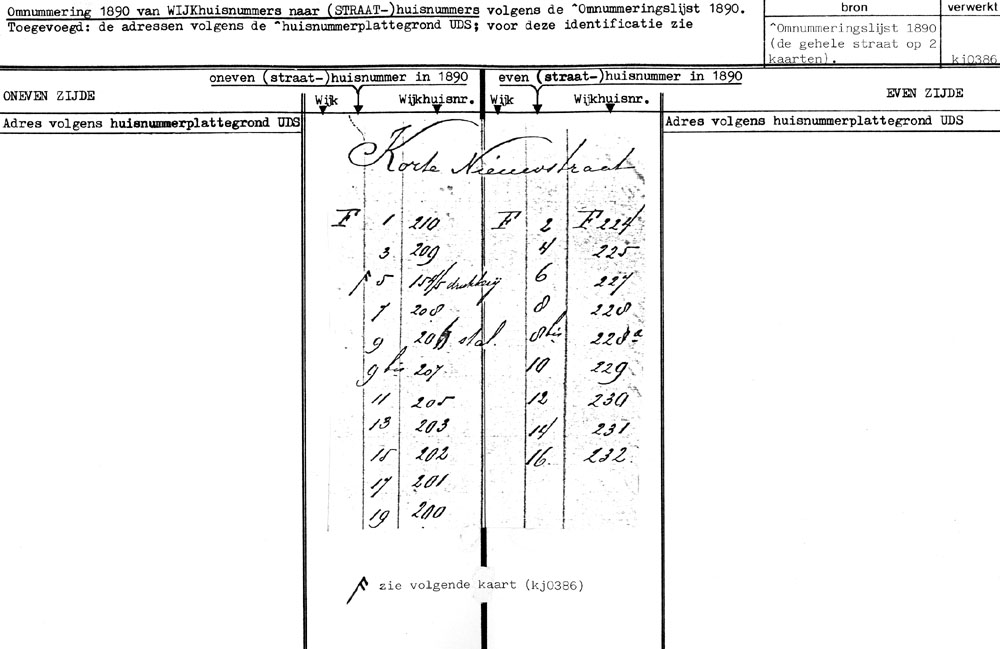 Omnummering 1890 van WIJKhuisnummers naar (STRAAT-)huisnummers volgens de ^Omnummeringslijst 1890.
Toegevoegd: de adressen volgens de ^huisnummerplattegrond UDS; voor deze identificatie zie
bron
verwerkt
^Omnummeringslijst 1890
(de gehele straat op 2
kaarten).
kj0386
oneven (straat-)huisnummer in 1890
even (straat-)huisnummer in 1890
ONEVEN ZIJDE
Wijk
Wijkhuisnr.
Wijk
Wijkhuisnr.
EVEN ZIJDE
Adres volgens huisnummerplattegrond UDS
Adres volgens huisnummerplattegrond UDS
Korte Nieuwstraat
F 1 210 F 2 F 224
3 209 4 225
5 drukkerij 6 227
7 208 8 228
9 stal. 8 bis 228a
9 bis 207 10 229
11 205 12 230
13 203 14 231
15 202 16 232
17 201
19 200
zie volgende kaart (kj0386)